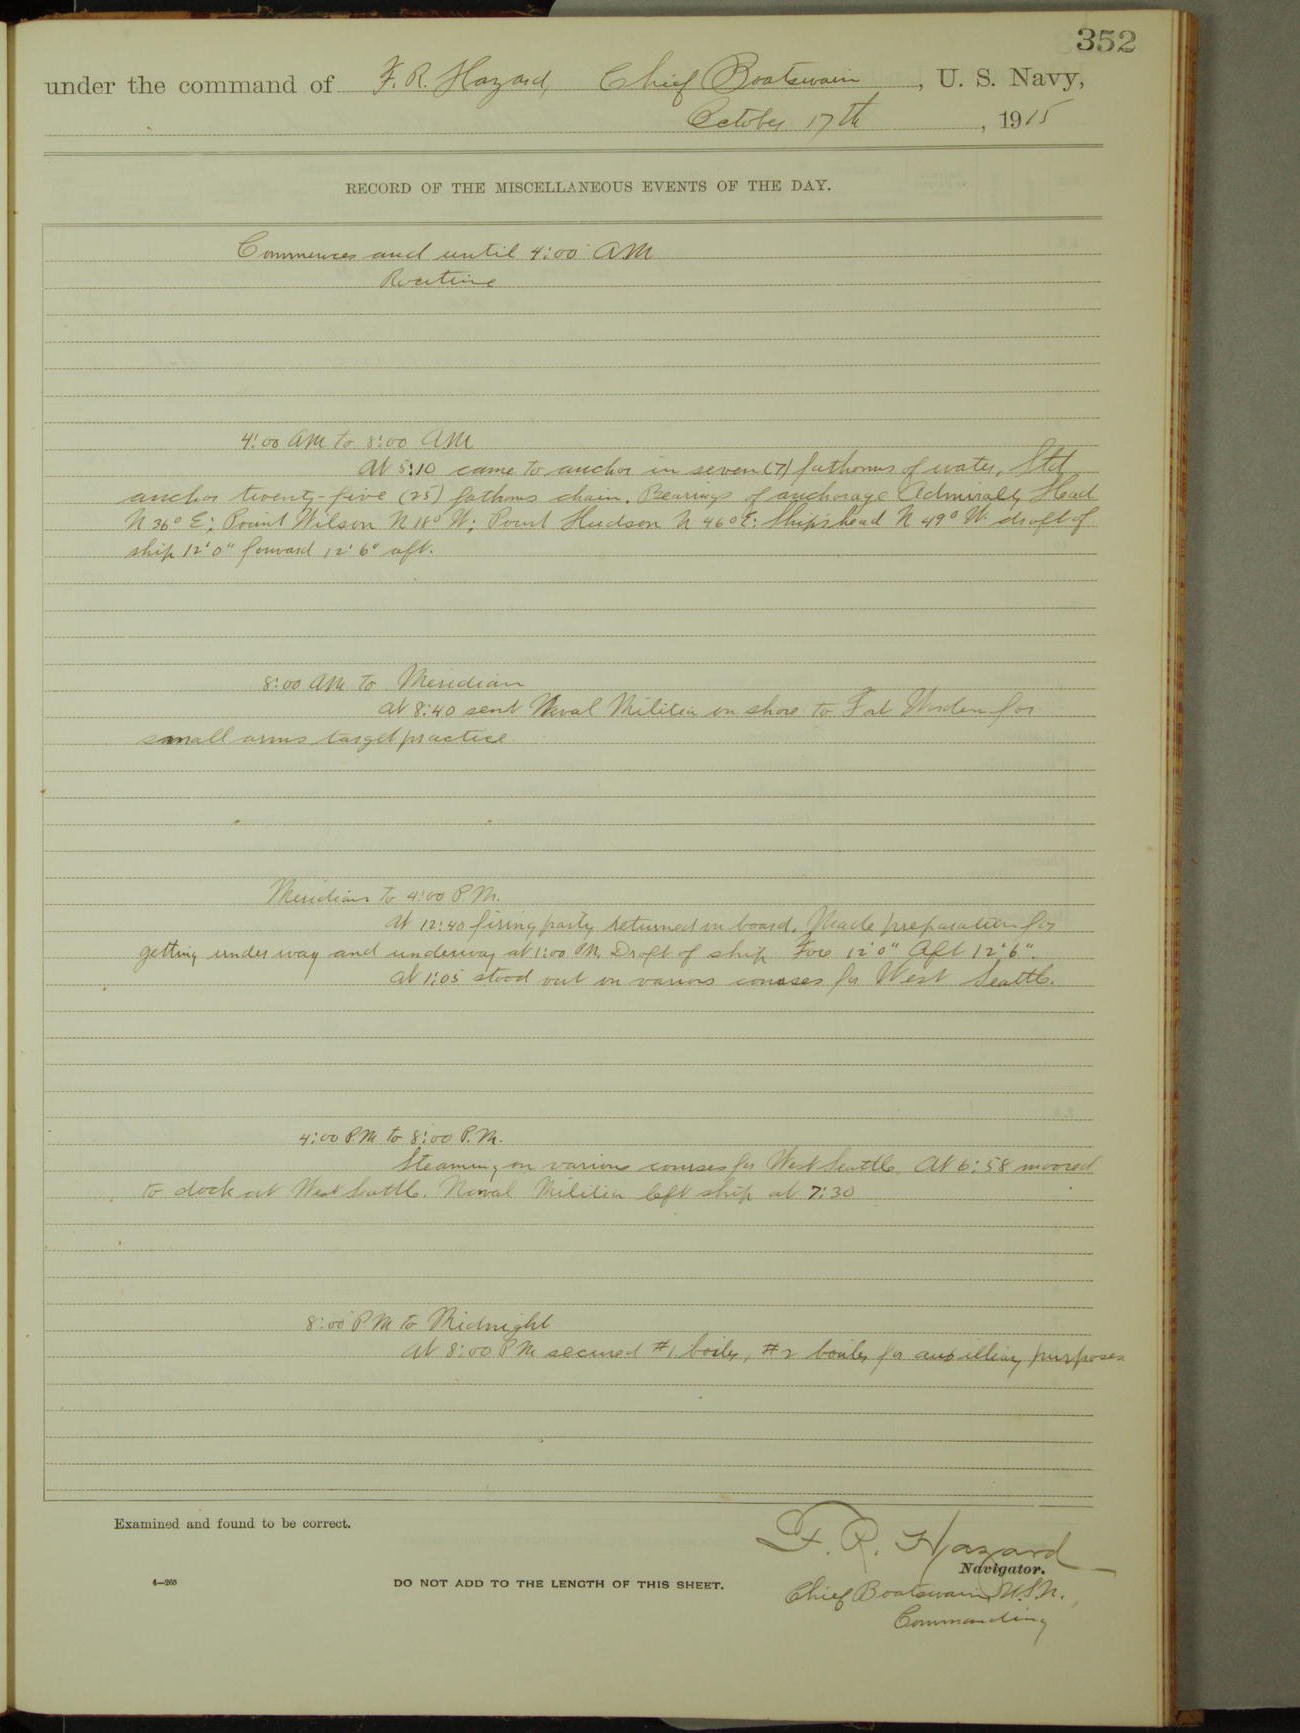 352
under the command of F. R. Hazard, Chief Boatswain, U. S. Navy,
October 17th, 1915
RECORD OF THE MISCELLANEOUS EVENTS OF THE DAY.
Commences and until 4:00 AM
Routine
4:00 AM to 8:00 AM
At 5:10 came to anchor in seven (7) fathoms of water, Std
anchor twenty-five (25) fathoms chain. Bearings of anchorage Admiralty Head
N 36° E; Point Wilson N 18° W; Point Hudson N 46° E: Ships head N 49° W. draft of
ship 12' 0" forward 12' 6" aft.
8:00 AM to Meridian
At 8:40 sent Naval Militia on shore to Fort Worden for
small arms target practice
Meridian to 4:00 P.M.
At 12:40 firing party returned on board. Made preparation for
getting under way and underway at 1:00 PM. Draft of ship Fore 12' 0" Aft 12' 6".
At 1:05 stood out on various courses for West Seattle.
4:00 P.M to 8:00 P.M.
Steaming on various courses for West Seattle. At 6:58 moored
to dock at West Seattle. Naval Militia left ship at 7:30
8:00 P.M to Midnight
At 8:00 P.M secured #1 boiler, #2 boiler for auxilliary purposes
Examined and found to be correct.
F. R. Hazard
Navigator.
4—265
DO NOT ADD TO THE LENGTH OF THIS SHEET.
Chief Boatswain, U.S.N.,
Commanding